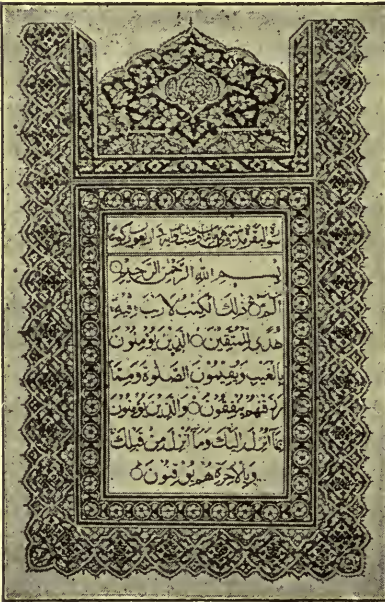 سورة البقرة مدنية وهي مائتان وست وثمانون آية واربعون ركوعا
بسم الله الرحمن الرحيم
الم ذلك الكتب لا ريب فيه
هدى للمتقين الذين يؤمنون
بالغيب ويقيمون الصلوة ومما
رزقنهم ينفقون والذين يؤمنون
بما انزل اليك وما انزل من قبلك
وبالاخرة هم يوقنون